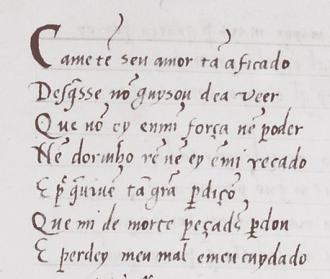 Ca me tẽ seu amor tã aficado
Desq̃ sse nõ guysou de a veer
Que nõ ey en mi força nẽ poder
Nẽ dormho rẽ nẽ ey ẽ mi recado
E p̃ q̃ vivẽ tã grã p̃diçõ
Que mi de morte peçades p̃don
E perdey meu mal e meu cuydado